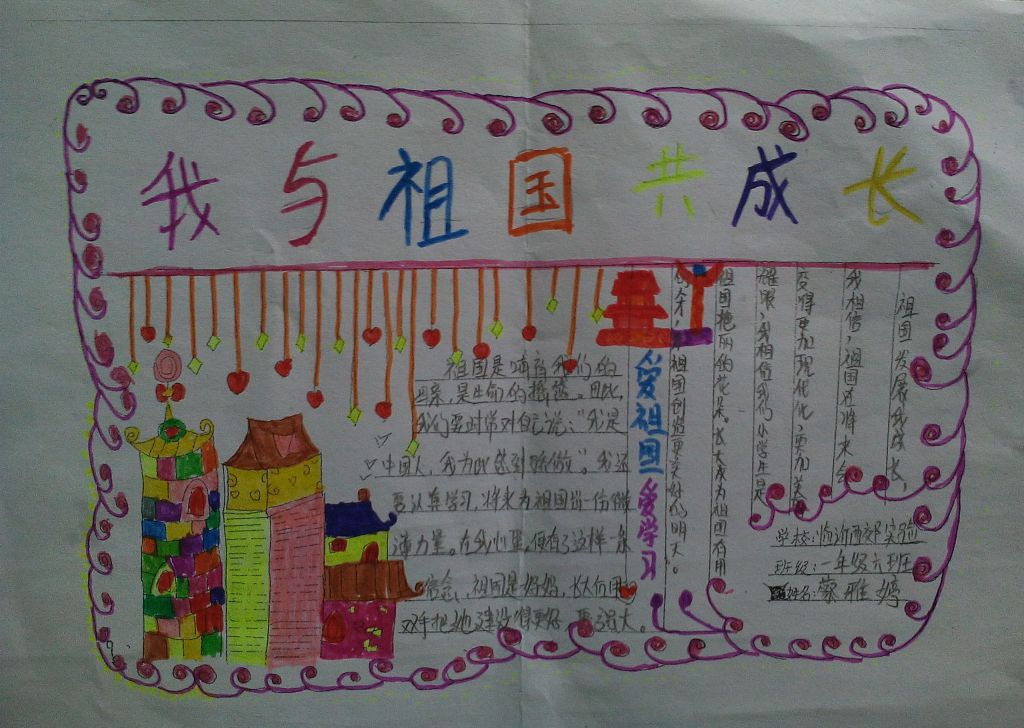 我与祖国共成长
祖国是哺育我们的
母亲,是生命的摇篮。因此,
我们要时常对自己说:“我是
中国人,我为此感到骄傲”。我还
要认真学习,将来为祖国出一份微
薄力量。在我心里,便有了这样一条
信念:祖国是妈妈,长大们用
双手把她建设得更好 更强大。
爱祖国 爱学习
祖国发展我成长,
我相信,祖国还将来会
变得更加现代化,更加美
耀眼,我相信我们小学生是
祖国艳丽的花朵。长大成为祖国有用
的人才,祖国创造更美好的明天。
学校:临沂西郊实验
班级:一年级六班
姓名:蔡雅婷